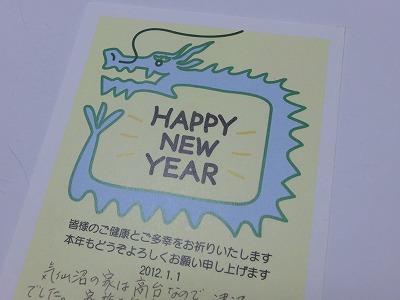 HAPPY
NEW
YEAR
皆様のご健康とご多幸をお祈りいたします
本年もどうぞよろしくお願い申し上げます
2012.1.1
気仙沼の家は高台なので、津波
でした。家族